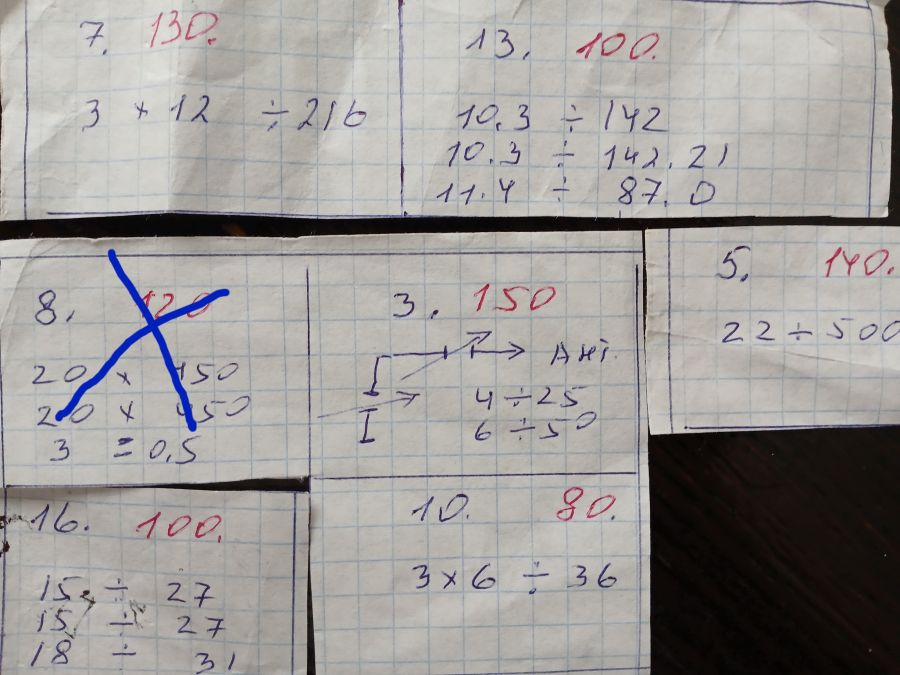 7. 130.
3 × 12 ÷ 216
13. 100.
10.3 ÷ 142
10.3 ÷ 142.21
11.4 ÷ 87.0
8. 120
20 × 450
20 × 450
3 = 0,5
3. 150
4 ÷ 25
6 ÷ 50
5. 140.
22 ÷ 500
16. 100.
15 ÷ 27
15 ÷ 27
18 ÷ 31
10. 80.
3 × 6 ÷ 36